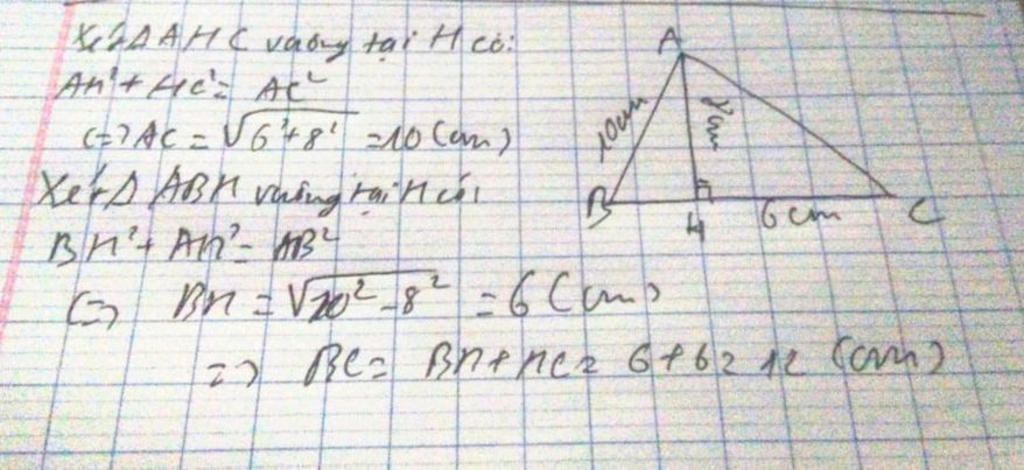 Xét Δ AHC vuông tại H có:
AH² + HC² = AC²
(=) AC = √6² + 8² = 10 (cm)
Xét Δ ABH vuông tại H có:
BH² + AH² = AB²
(=) BH = √10² - 8² = 6 (cm)
=) BC = BH + HC = 6 + 6 = 12 (cm)
A
10cm
8cm
B
H
6cm
C